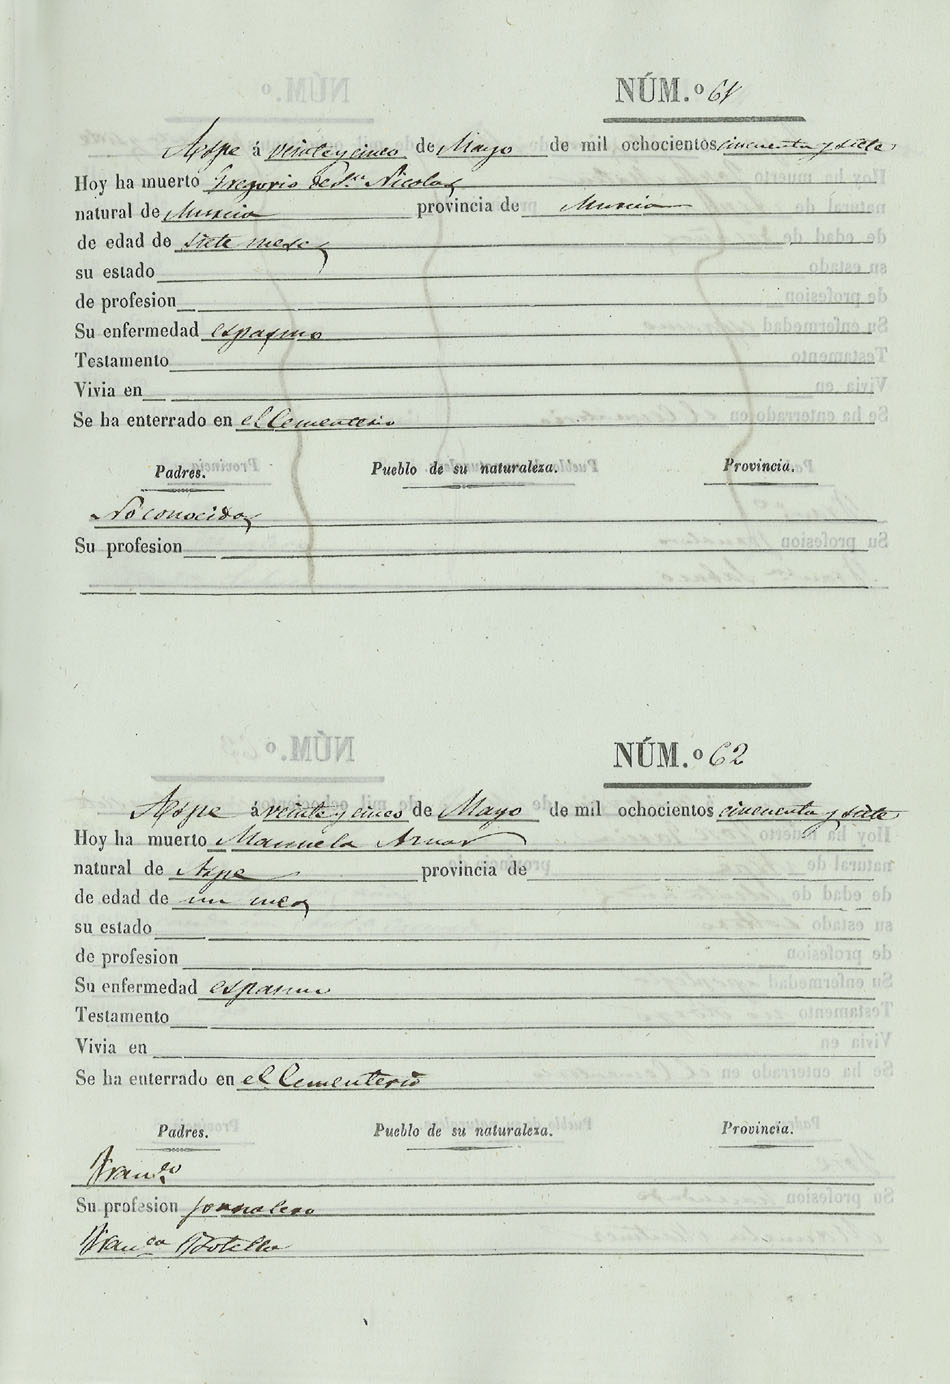 NÚM.º 61
Aspe á veinte y cinco de Mayo de mil ochocientos cincuenta y siete
Hoy ha muerto Gregorio de Sn. Nicolas
natural de Murcia provincia de Murcia
de edad de siete meses
su estado
de profesion
Su enfermedad espasmo
Testamento
Vivia en
Se ha enterrado en el Cementerio
Padres. Pueblo de su naturaleza. Provincia.
No conocidos
Su profesion
NÚM.º 62
Aspe á veinte y cinco de Mayo de mil ochocientos cincuenta y siete
Hoy ha muerto Manuela
natural de Aspe provincia de
de edad de un mes
su estado
de profesion
Su enfermedad espasmo
Testamento
Vivia en
Se ha enterrado en el Cementerio
Padres. Pueblo de su naturaleza. Provincia.
Franco.
Su profesion jornalero
Franca Botella